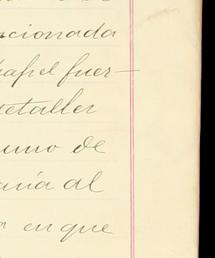 cionada
papel fuer-
detaller
sumo de
anía al
en que